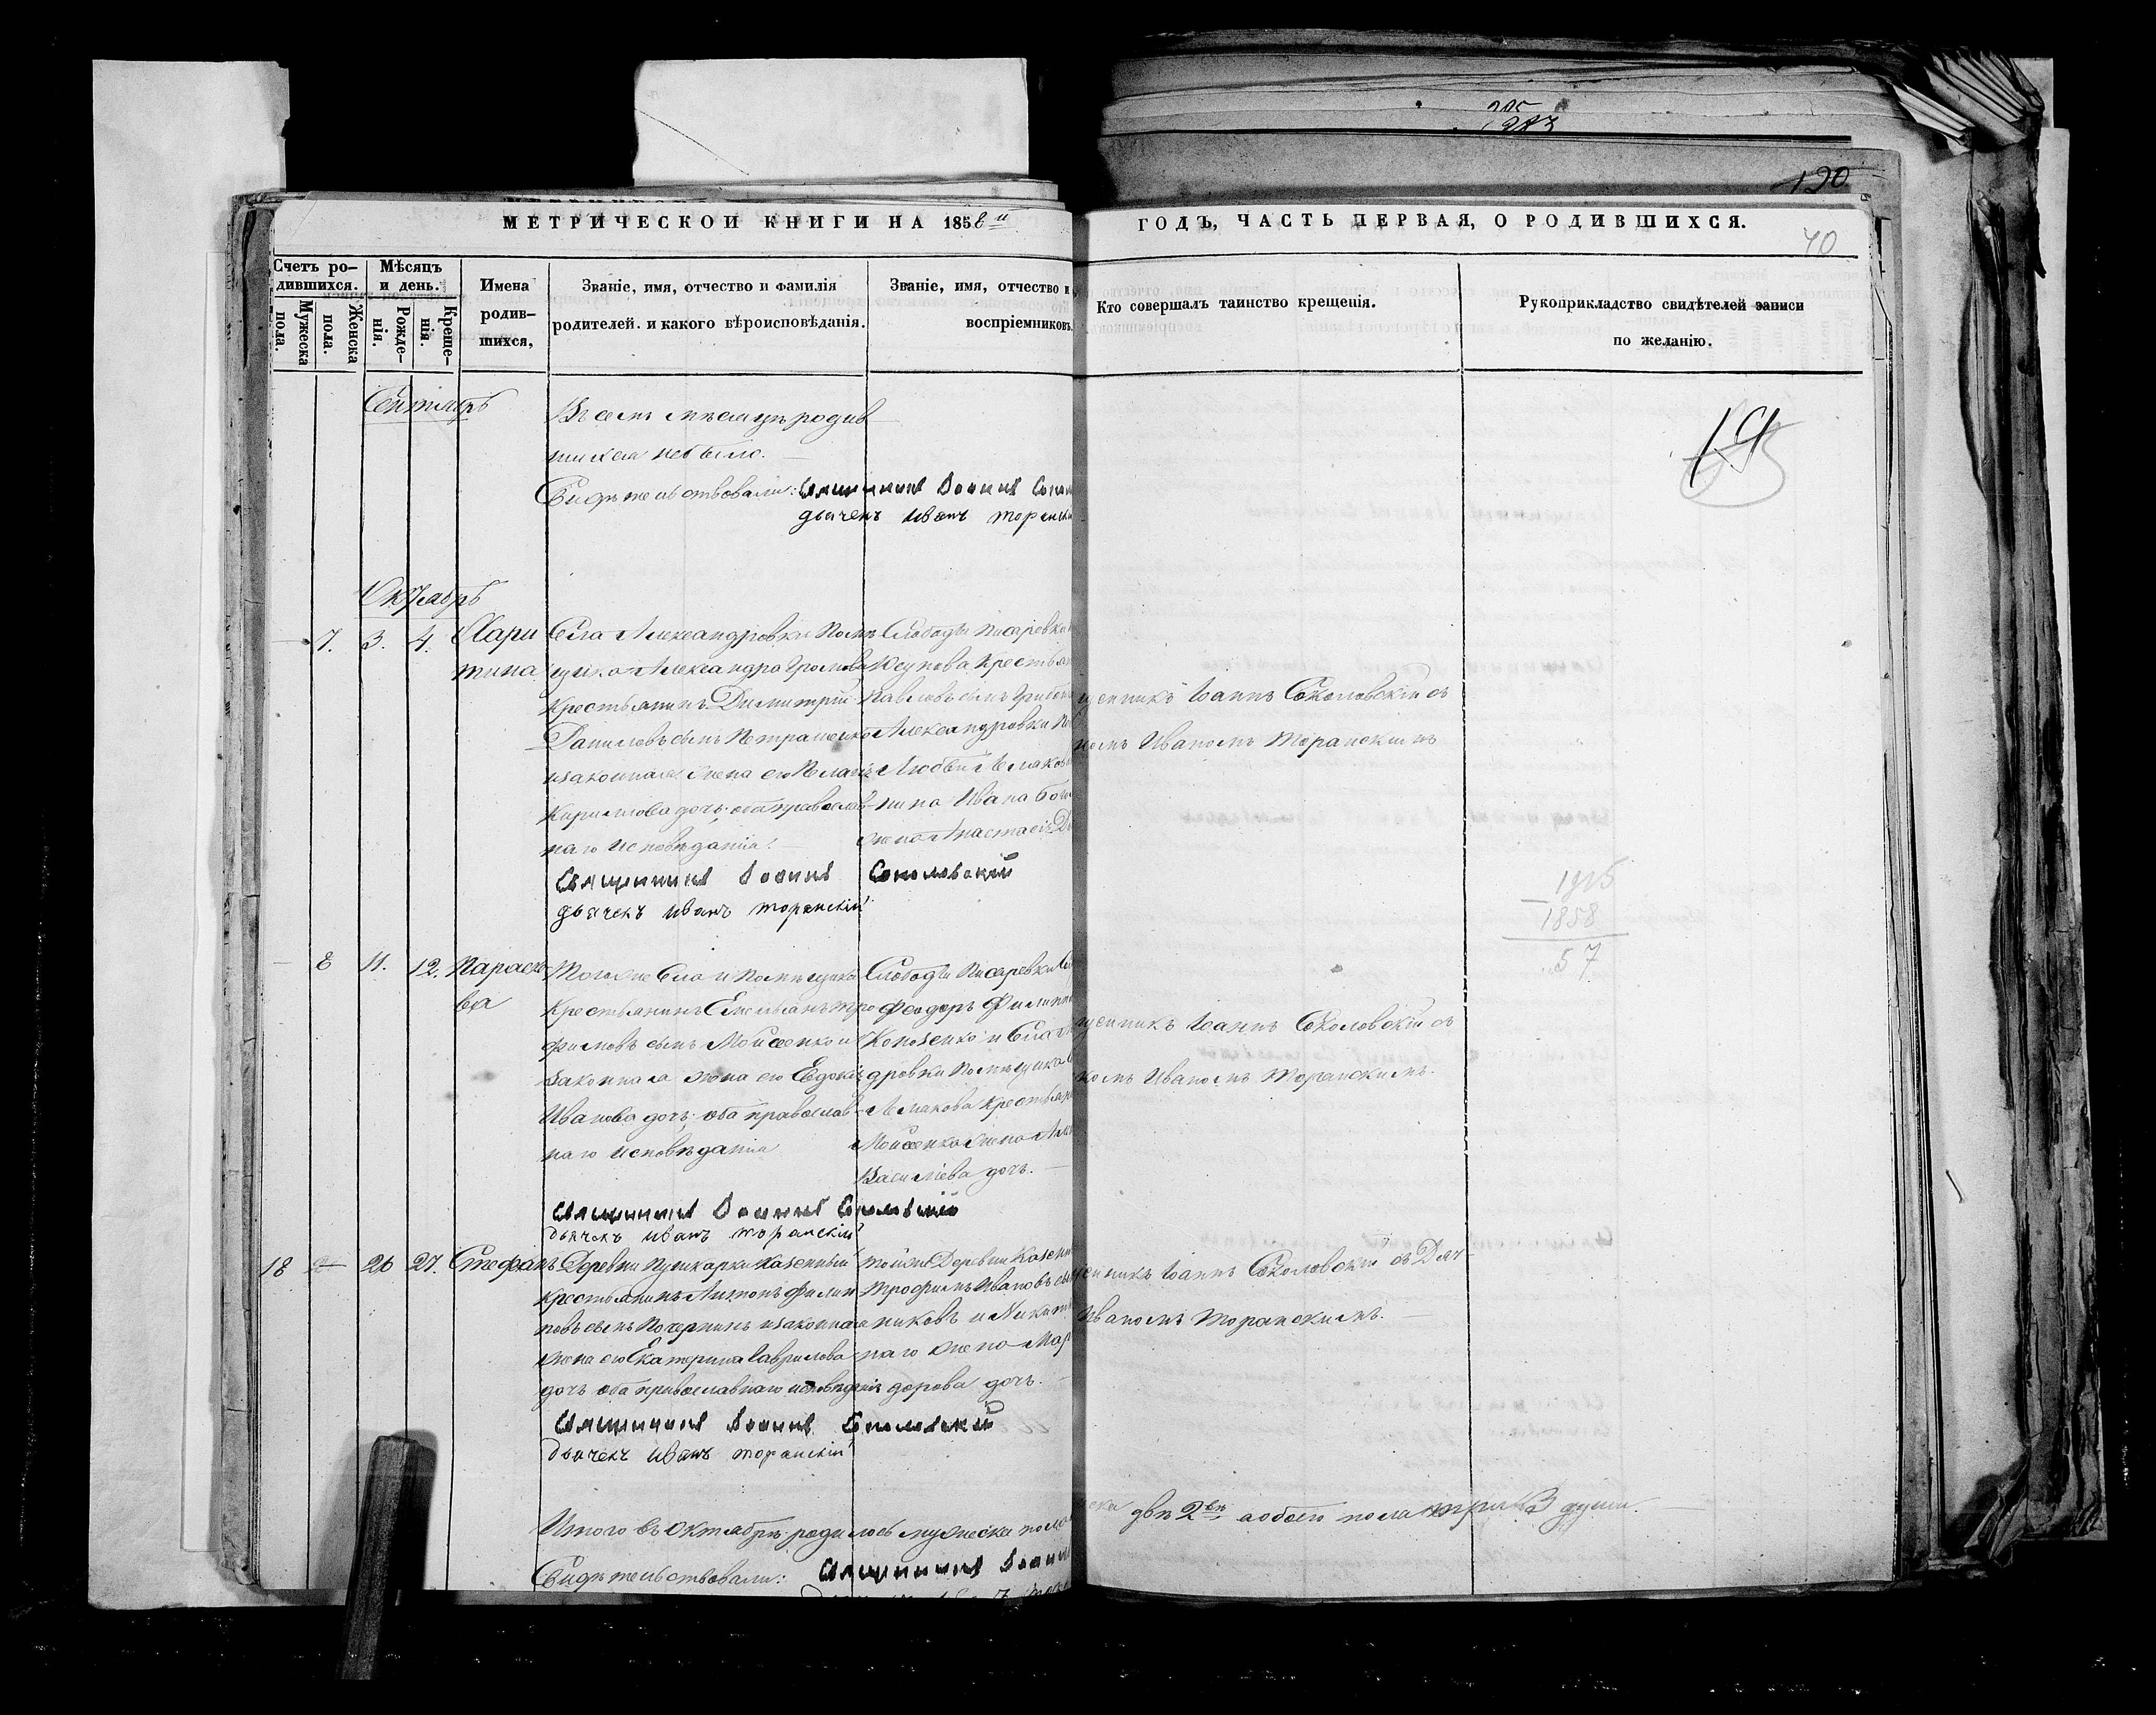 190
МЕТРИЧЕСКОЙ КНИГИ НА 1858й
ГОДЪ, ЧАСТЬ ПЕРВАЯ, О РОДИВШИХСЯ.
70
Счетъ ро-
дившихся.
Мужеска
пола.
Женска
пола.
Мѣсяцъ
и день.
Рожде-
нія.
Креще-
нія.
Имена
родив-
шихся,
Званіе, имя, отчество и фамилія
родителей. и какого вѣроисповѣданія.
Званіе, имя, отчество и
воспріемниковъ.
Кто совершалъ таинство крещенія.
Рукоприкладство свидѣтелей записи
по желанію.
Сентябрь
Въ семъ мѣсяцѣ родив
шихся небыло. —
Свидѣтельствовали: Священникъ Іоаннъ
дьячекъ Иванъ Торанскі
19
Октябрь
7. 3. 4. Хари
тина
Села Александровки Помѣ
щика Александра Громова
крестьянинъ Димитрій
Даниловъ сынъ Петраменко
изаконная жена его Пелагія
Кирилова дочь; оба православ-
наго исповѣданія. —
Слободы Писаревки
Юсупова Крестьян
Павловъ сынъ
Александровки По
Любви
Ивана
жена Анастасія
щенникъ Іоаннъ Соколовскій съ
комъ Иваномъ Торанскимъ
Священникъ Іоаннъ Соколовскій
дьячекъ Иванъ Торанскій
1915
— 1858
57
8 11. 12. Параске
ва
Тогоже Села и Помѣщика
Крестьянинъ Емельянъ Тро
фимовъ сынъ Мойсеенко и
законная жена его Евдокія
Иванова дочь; оба православ-
наго исповѣданія
Слободы Писаревки
Феодоръ Филипп
Коноsенко и Села
дровки Помѣщика
Лмакова Крестьян
Мойсеенка жена
Василіева дочь. —
щенникъ Іоаннъ Соколовскій съ
комъ Иваномъ Торанскимъ.
Священникъ Іоаннъ Соколовскій
Дьячекъ Иванъ Торанскій
18 26 27. Стефанъ
Деревни Пушкарки Казенный
крестьянинъ Антонъ Филип
повъ сынъ изаконная
жена его Екатерина Гаврилова
дочь оба православнаго исповѣданія
тойже Деревни Казенн
Трофимъ Ивановъ сы
никовъ и Никит
наго жена Мар
дорова дочь. —
щенникъ Іоаннъ Соколовскій съ Дяч-
Иваномъ Торанскимъ. —
Священникъ Іоаннъ Соколовскій
Дьячекъ Иванъ Торанскій
Итого въ Октябрѣ родилось мужеска пола
ска двѣ 2вѣ, а обоего пола три 3 души. —
Свидѣтельствовали: Священникъ Іоанн